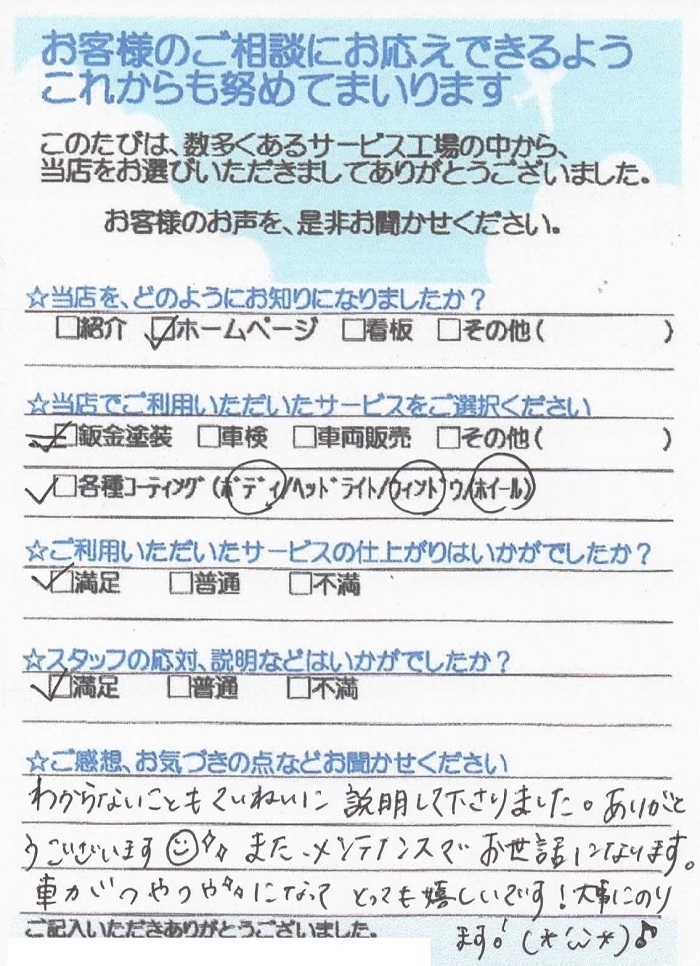 お客様のご相談にお応えできるよう
これからも努めてまいります
このたびは、数多くあるサービス工場の中から、
当店をお選びいただきましてありがとうございました。
お客様のお声を、是非お聞かせください。
☆当店を、どのようにお知りになりましたか？
□紹介 ☑ホームページ □看板 □その他（ ）
☆当店でご利用いただいたサービスをご選択ください
☑鈑金塗装 □車検 □車両販売 □その他（ ）
☑各種コーティング（ボディ/ヘッドライト/ウィンドウ/ホイール）
☆ご利用いただいたサービスの仕上がりはいかがでしたか？
☑満足 □普通 □不満
☆スタッフの応対、説明などはいかがでしたか？
☑満足 □普通 □不満
☆ご感想、お気づきの点などお聞かせください
わからないこともていねいに 説明して下さりました。ありがと
うございます☺ また、メンテナンスで お世話になります。
車がつやつやになって とっても嬉しいです！大事にのり
ます！(*'ω'*)♪
ご記入いただきありがとうございました。